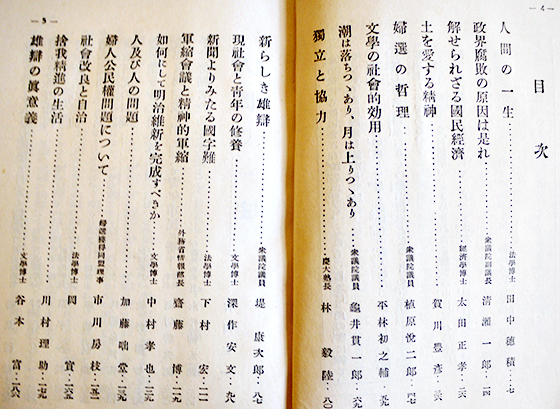 —4—
目次
人間の一生……法學博士 田中穗積…七
政界腐敗の原因は是れ……衆議院副議長 清瀬一郎…一四
解せられざる國民經濟……經濟學博士 太田正孝…二六
土を愛する精神……賀川豊彦
婦選の哲理……衆議院議員 植原悦二郎…四七
文學の社會的効用……平林初之輔…五九
潮は落ちつゝあり、月は上りつゝあり……衆議院議員 龜井貫一郎…六九
獨立と協力……慶大塾長 林毅陸…八〇
—5—
新らしき雄辯……衆議院議員 堤康次郎…八七
現社會と青年の修養……文學博士 深作安文…九八
新聞よりみたる國字難……法學博士 下村宏
軍縮會議と精神的軍縮……外務省情報部長 齋藤博…一一九
如何にして明治維新を完成すべきか……文學博士 中村孝也…一二九
人及び人の問題……加藤咄堂…一三九
婦人公民權問題について……婦選獲得同盟理事 市川房枝…一五一
社會改良と自治……法學博士 岡實…一六五
捨我精進の生活……川村理助
雄辯の眞意義……文學博士 谷本富